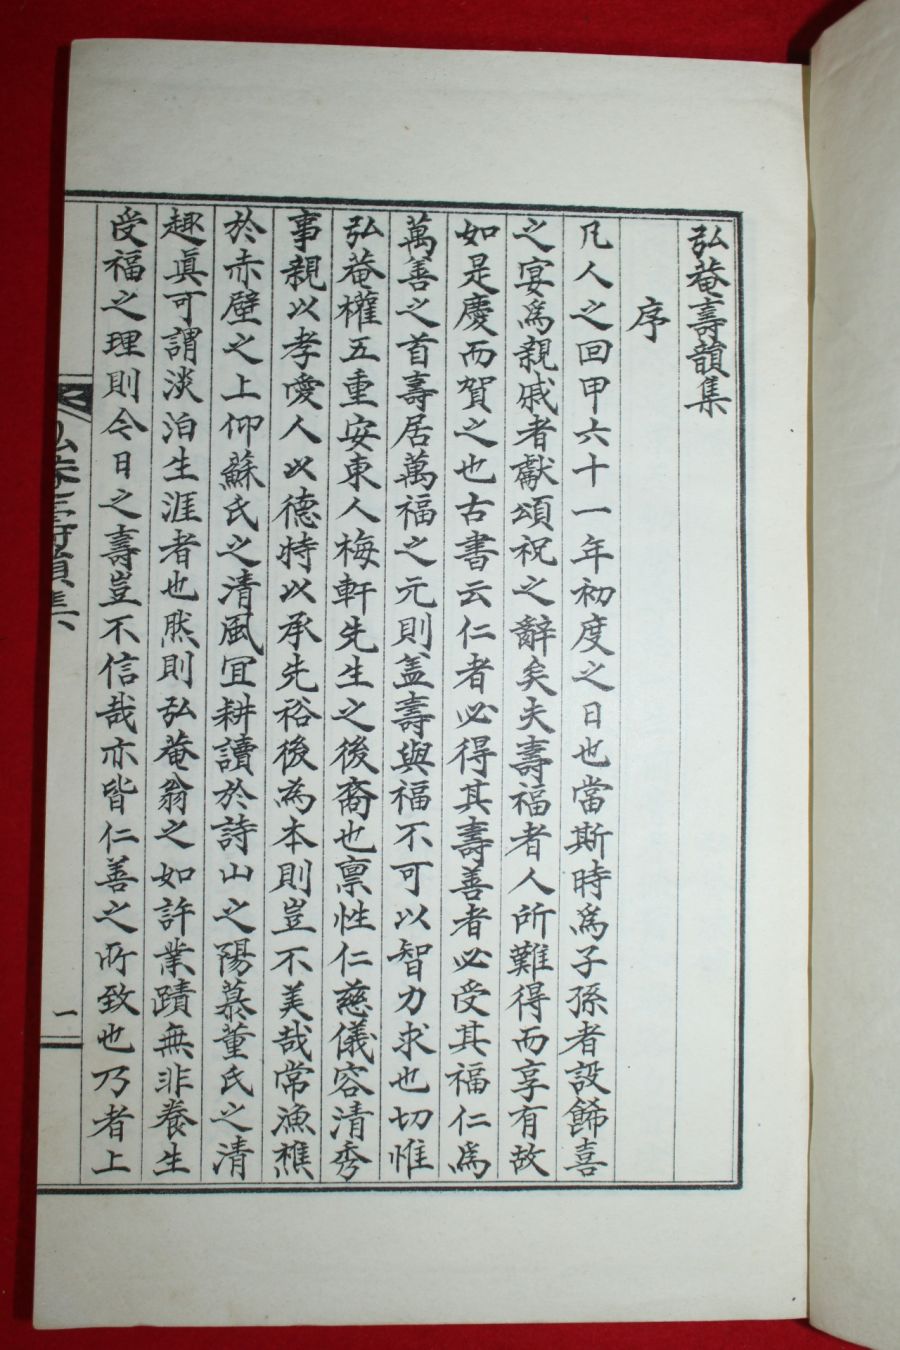 弘菴壽韻集
序
凡人之回甲六十一年初度之日也當斯時爲子孫者設餙喜
之宴爲親戚者獻頌祝之辭矣夫壽福者人所難得而享有故
如是慶而賀之也古書云仁者必得其壽善者必受其福仁爲
萬善之首壽居萬福之元則盖壽與福不可以智力求也切惟
弘菴權五重安東人梅軒先生之後裔也禀性仁慈儀容清秀
事親以孝愛人以德恃以承先裕後為本則豈不美哉常漁樵
於赤壁之上仰蘇氏之清風冝耕讀於詩山之陽慕董氏之清
趣眞可謂淡泊生涯者也然則弘菴翁之如許業蹟無非養生
受福之理則今日之壽豈不信哉亦皆仁善之所致也乃者上
弘菴壽韻集
一